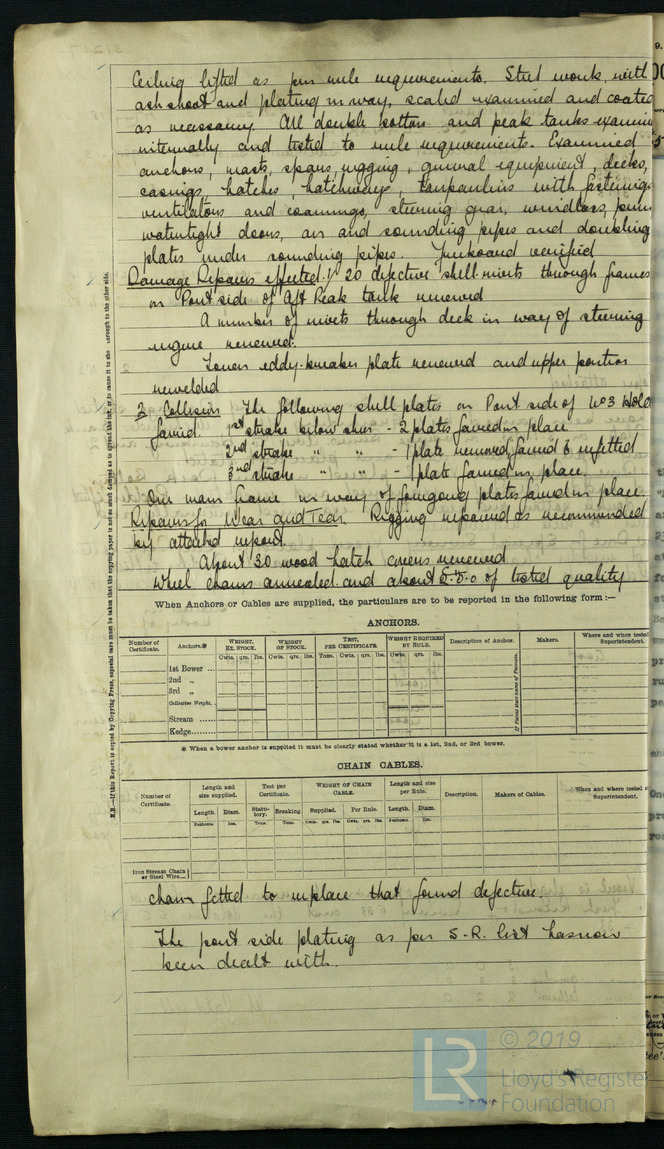 Ceiling lifted as per rule requirements. Steel work, with
ash shoot and plating in way, scaled examined and coated
as necessary. All double bottom and peak tanks examin
internally and tested to rule requirements. Examined
anchors, masts, spars, rigging, general equipment, decks,
casings, hatches, hatchways, tarpaulins with fastenings
ventilators and coamings, steering gear, windlass, pum
watertight doors, air and sounding pipes and doubling
plates under sounding pipes. Freeboard verified
Damage Repairs effected. 1/ 20 defective shell rivets through frames
on Port side of Aft Peak tank renewed
A number of rivets through deck in way of steering
engine renewed.
Lower eddy-breaker plate renewed and upper portion
rewelded
2 Collision The following shell plates on Port side of No 3 Hold
faired. 1st strake below sheer - 2 plates faired in place
2nd strake " " - 1 plate removed faired & refitted
3rd strake " " - 1 plate faired in place.
One main frame in way of foregoing plates faired in place.
Repairs for Wear and Tear. Rigging repaired as recommended
by attached report.
About 30 wood hatch covers renewed
Wheel chains annealed and about of tested quality
When Anchors or Cables are supplied, the particulars are to be reported in the following form:—
ANCHORS.
Number of Certificate. Anchors.* WEIGHT, EX. STOCK. WEIGHT OF STOCK. TEST, PER CERTIFICATE. WEIGHT REQUIRED BY RULE. Description of Anchor. Makers. Where and when tested Superintendent.
Cwts. qrs. lbs. Cwts. qrs. lbs. Tons. Cwts. qrs. lbs. Cwts. qrs. lbs.
If Patent state name of Patentee.
1st Bower ...
2nd "
3rd "
Collective Weight.
Stream ......
Kedge......
* When a bower anchor is supplied it must be clearly stated whether it is a 1st, 2nd, or 3rd bower.
CHAIN CABLES.
Number of Certificate. Length and size supplied. Test per Certificate. WEIGHT OF CHAIN CABLE. Length and size per Rule. Description. Makers of Cables. When and where tested Superintendent.
Length. Diam. Statutory. Breaking. Supplied. Per Rule. Length. Diam.
Fathoms. Ins. Tons. Tons. Cwts. qrs. lbs. Cwts. qrs. lbs. Fathoms. Ins.
Iron Stream Chain
or Steel Wire...
chain fitted to replace that found defective.
The port side plating as per S.R. list has now
been dealt with.
N.B.—If this Report is copied by Copying Press, especial care must be taken that the copying paper is not so much damped as to spread the ink, or to cause it to show through to the other side.
LR
© 2019
Lloyd's Register
Foundation